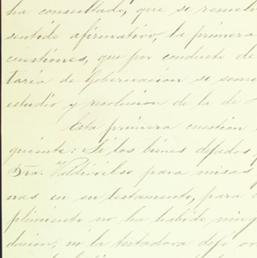 ha consultado, que se resuelva
sentido afirmativo, la primera
cuestiones, que por conducto de
taría de Gobernacion se some
estudio y resolucion de la de
Esta primera cuestion
guiente: Si los bienes dejados
Sra. para misas
nas en su testamento, para
plimiento no ha habido nin
dicion, ni la testadora dejó or